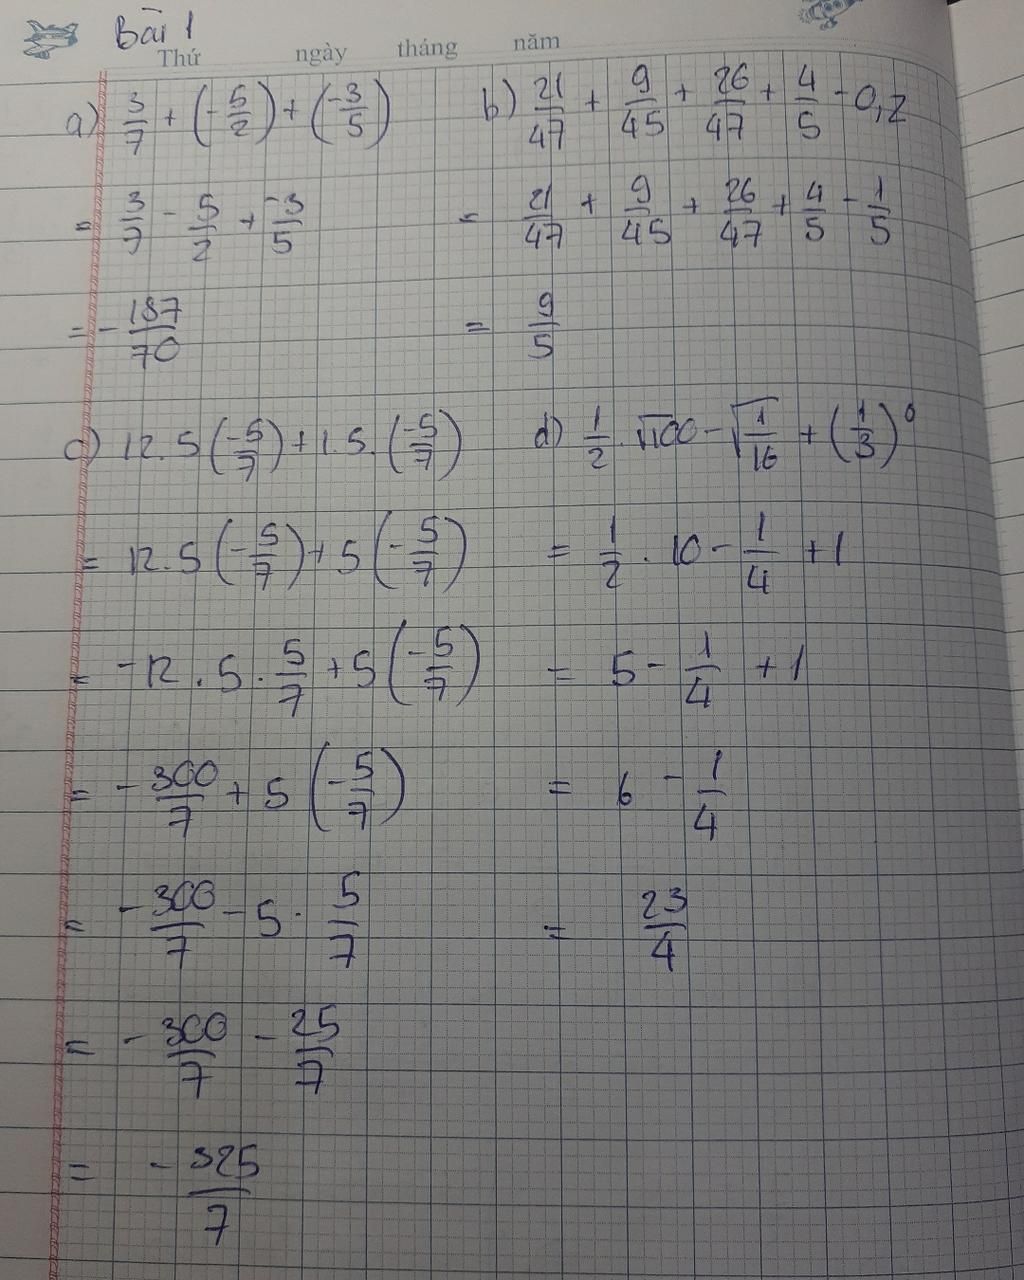 Bài 1
Thứ ngày tháng năm
a) 3/7 + (-5/2) + (-3/5)
= 3/7 - 5/2 + -3/5
= - 187/70
b) 21/47 + 9/45 + 26/47 + 4/5 - 0,2
= 21/47 + 9/45 + 26/47 + 4/5 - 1/5
= 9/5
c) 12.5 (-5/7) + 1.5. (-5/7)
= 12.5 (-5/7) + 5 (-5/7)
= -12 . 5 . 5/7 + 5 (-5/7)
= - 300/7 + 5 (-5/7)
= - 300/7 - 5 . 5/7
= - 300/7 - 25/7
= - 325/7
d) 1/2 . √100 - √1/16 + (1/3)⁰
= 1/2 . 10 - 1/4 + 1
= 5 - 1/4 + 1
= 6 - 1/4
= 23/4